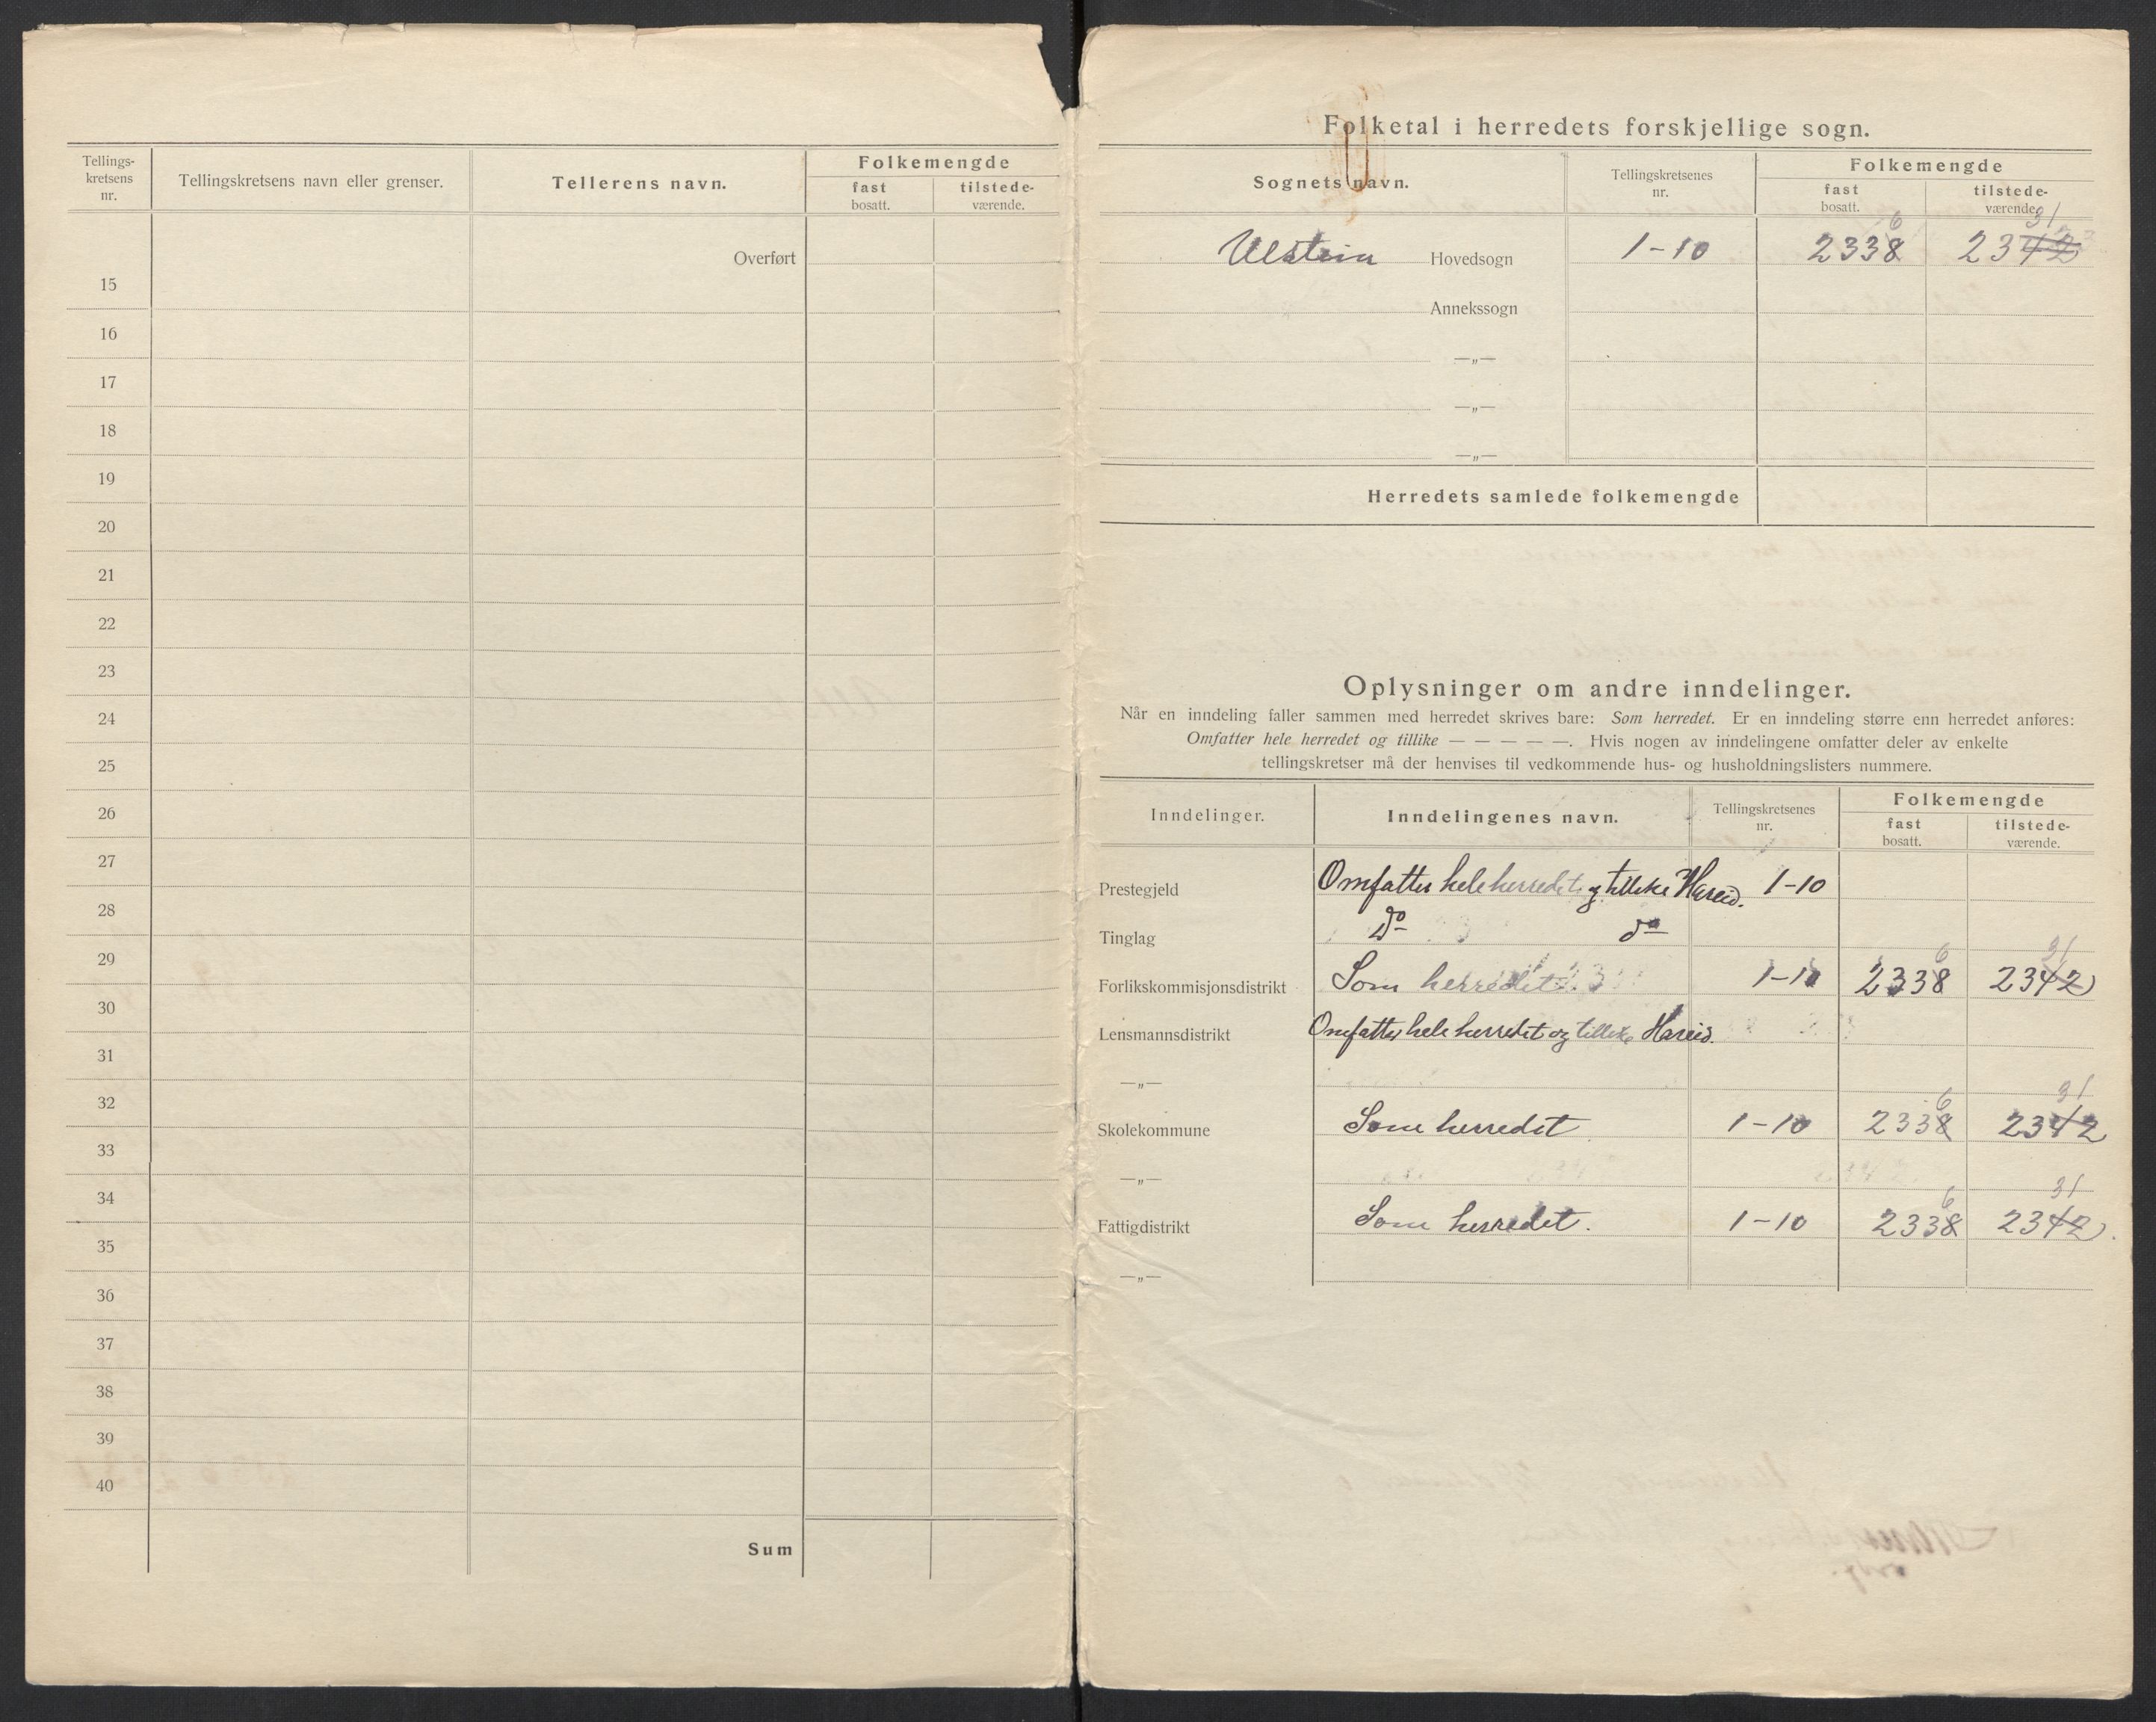 Tellings-
kretsens
nr.
Tellingskretsens navn eller grenser.
Tellerens navn.
Folkemengde
fast
bosatt.
tilstede-
værende.
Overført
15
16
17
18
19
20
21
22
23
24
25
26
27
28
29
30
31
32
33
34
35
36
37
38
39
40
Sum
Folketal i herredets forskjellige sogn.
Sognets navn.
Tellingskretsenes
nr.
Folkemengde
fast
bosatt.
tilstede-
værende.
6 31
Ulstein Hovedsogn 1-10 2338 2342
Annekssogn
—„—
—„—
—„—
Herredets samlede folkemengde
Oplysninger om andre inndelinger.
Når en inndeling faller sammen med herredet skrives bare: Som herredet. Er en inndeling større enn herredet anføres:
Omfatter hele herredet og tillike — — — — —. Hvis nogen av inndelingene omfatter deler av enkelte
tellingskretser må der henvises til vedkommende hus- og husholdningslisters nummere.
Inndelinger.
Inndelingenes navn.
Tellingskretsenes
nr.
Folkemengde
fast
bosatt.
tilstede-
værende.
Prestegjeld Omfatter hele herredet og tillike Hareid. 1-10
Tinglag Do do
6 31
Forlikskommisjonsdistrikt Som herredet 1-10 2338 2342
Lensmannsdistrikt Omfatter hele herredet og tillike Hareid.
—„—
6 31
Skolekommune Som herredet 1-10 2338 2342
—„—
6 31
Fattigdistrikt Som herredet. 1-10 2338 2342.
—„—